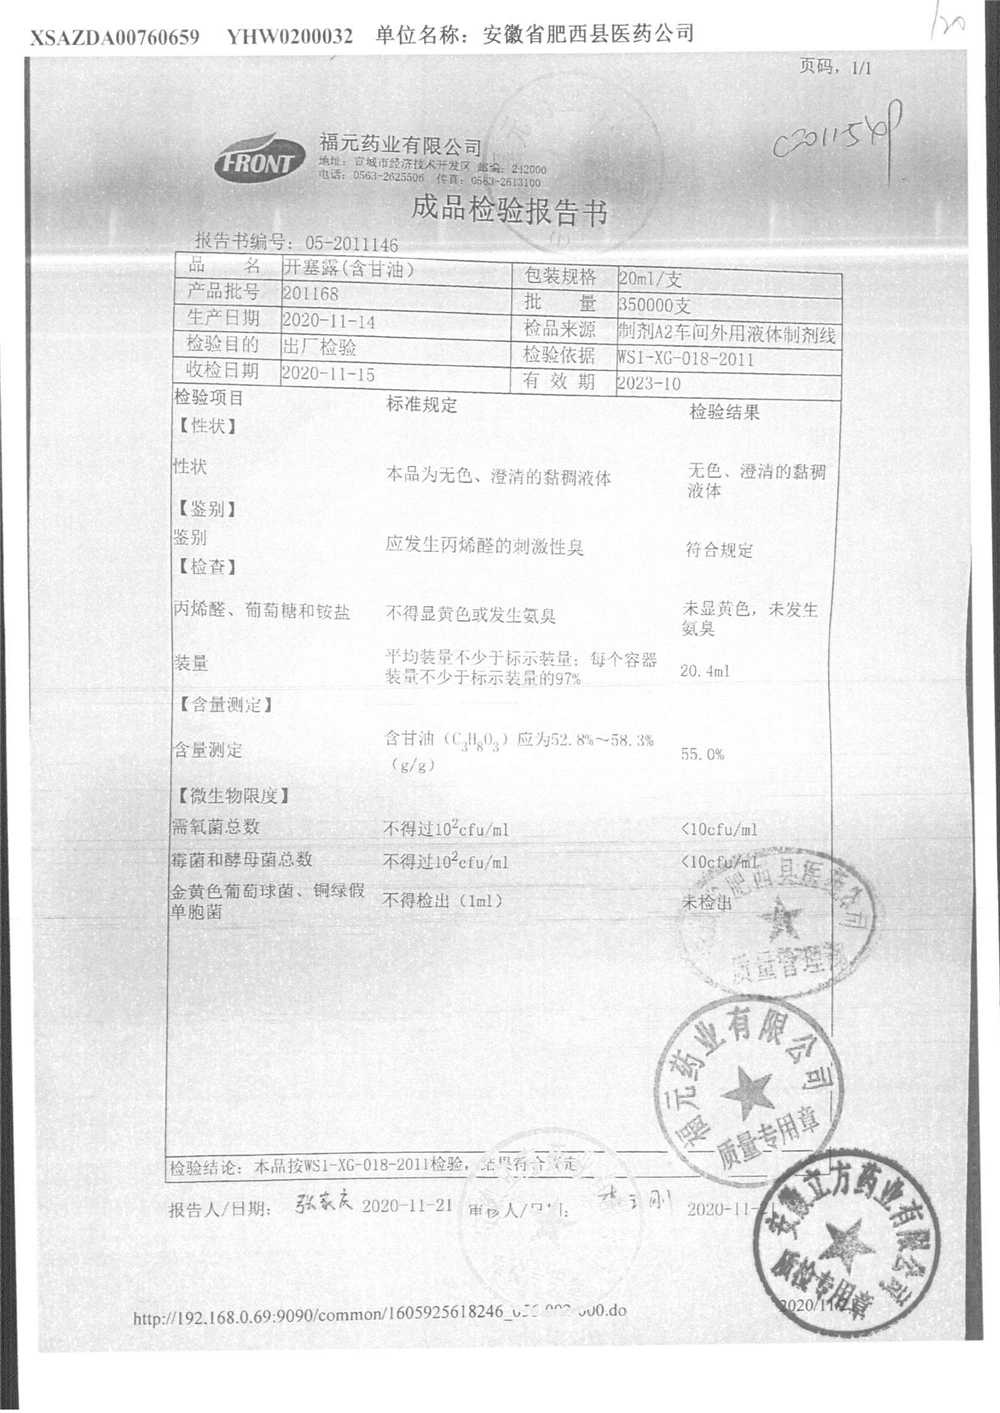 XSAZDA00760659 YHW0200032 单位名称：安徽省肥西县医药公司
120
页码，1/1
FRONT
福元药业有限公司
地址：宣城市经济技术开发区 邮编：242000
电话：0563-2625506 传真：0563-2613100
成品检验报告书
(1)
报告书编号：05-2011146
品 名 开塞露(含甘油) 包装规格 20ml/支
产品批号 201168 批 量 350000支
生产日期 2020-11-14 检品来源 制剂A2车间外用液体制剂线
检验目的 出厂检验 检验依据 WS1-XG-018-2011
收检日期 2020-11-15 有 效 期 2023-10
检验项目 标准规定 检验结果
【性状】
性状 本品为无色、澄清的黏稠液体 无色、澄清的黏稠
液体
【鉴别】
鉴别 应发生丙烯醛的刺激性臭 符合规定
【检查】
丙烯醛、葡萄糖和铵盐 不得显黄色或发生氨臭 未显黄色，未发生
氨臭
装量 平均装量不少于标示装量；每个容器
装量不少于标示装量的97% 20.4ml
【含量测定】
含量测定 含甘油（C3H8O3）应为52.8%～58.3%
（g/g） 55.0%
【微生物限度】
需氧菌总数 不得过10²cfu/ml <10cfu/ml
霉菌和酵母菌总数 不得过10²cfu/ml <10cfu/ml
金黄色葡萄球菌、铜绿假
单胞菌 不得检出（1ml） 未检出
肥西县医药公司
质量管理
福元药业有限公司
质量专用章
检验结论：本品按WS1-XG-018-2011检验，结果符合规定
报告人/日期： 张家庆 2020-11-21 审核人/日期： 刚 2020-11-
安徽立方药业有限公司
质检专用章
http://192.168.0.69:9090/common/1605925618246_ 000.do
2020/11/